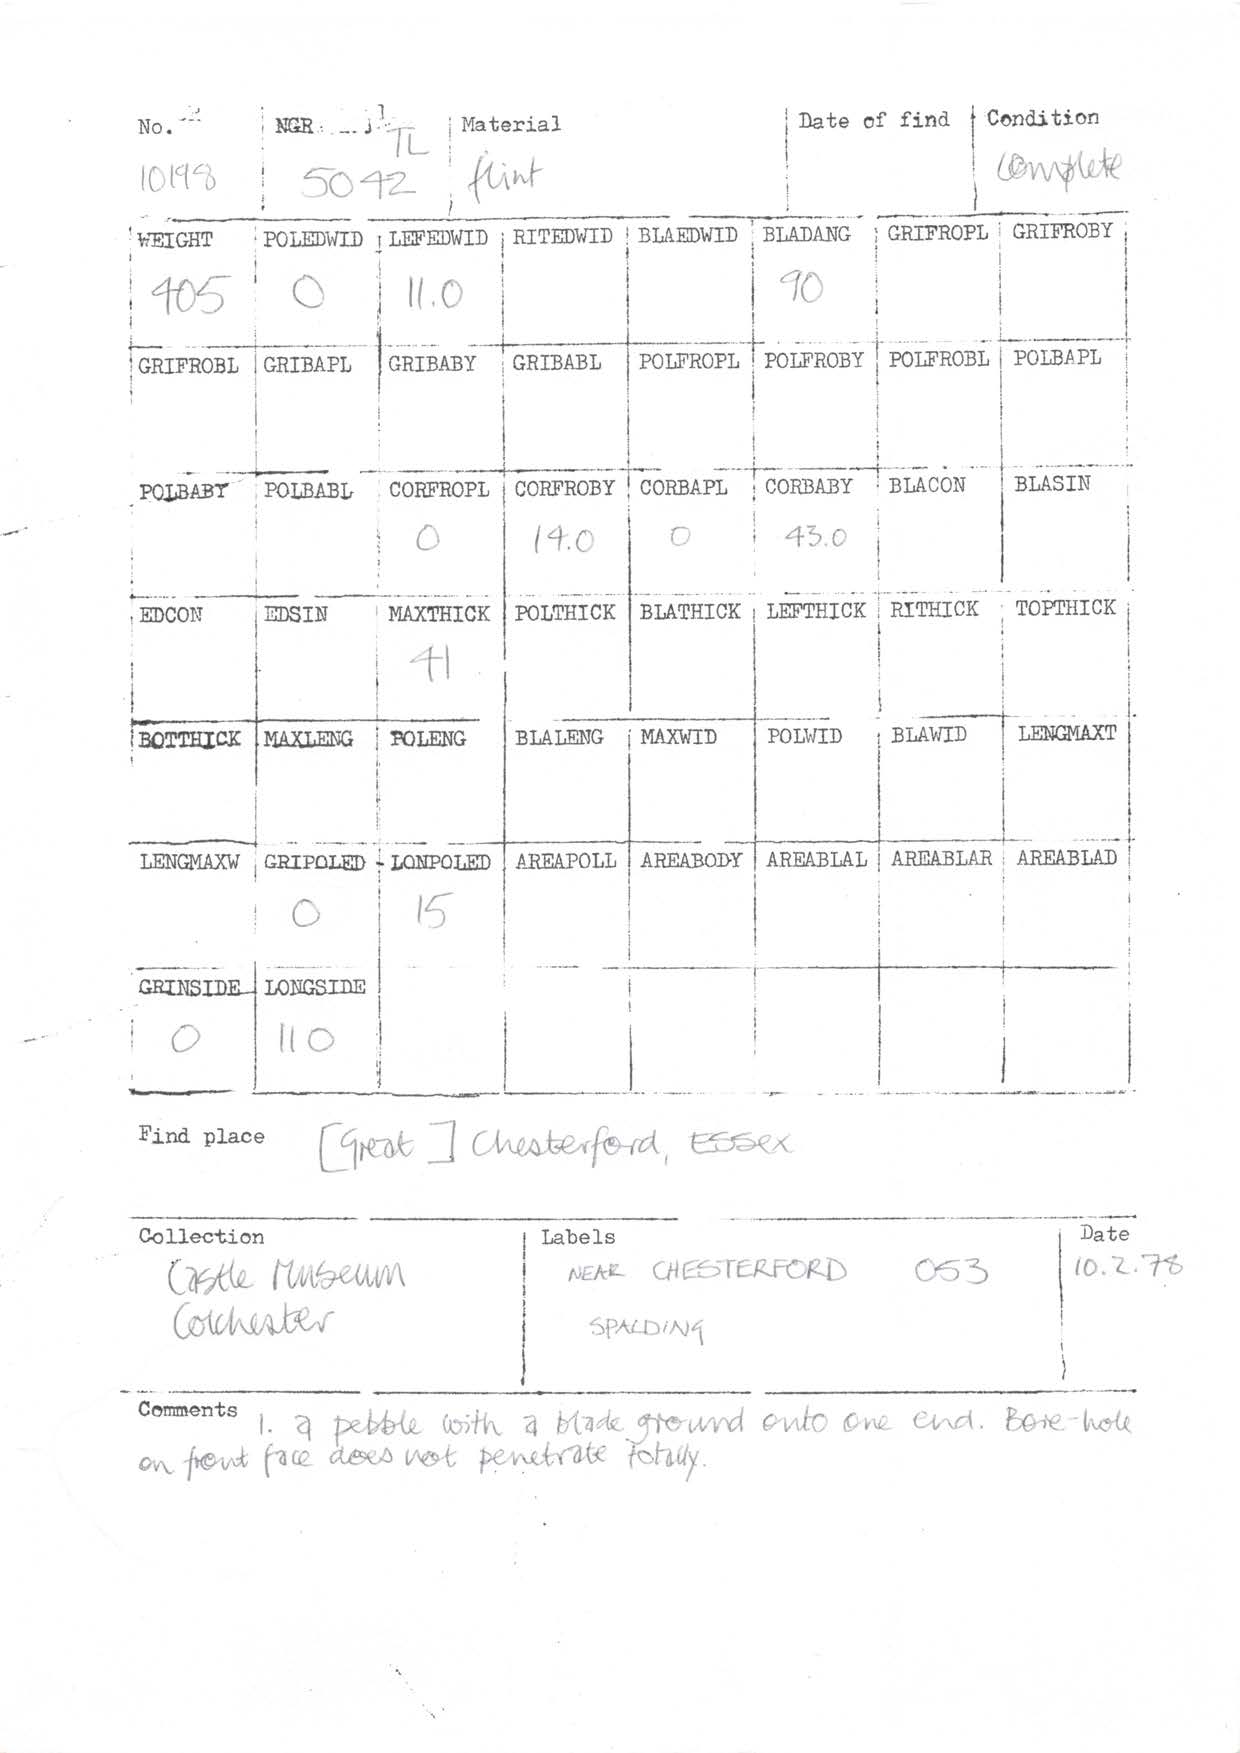 No. NGR Material Date of find Condition
10198 TL 5042 flint complete
WEIGHT POLEDWID LEFEDWID RITEDWID BLAEDWID BLADANG GRIFROPL GRIFROBY
405 0 11.0 90
GRIFROBL GRIBAPL GRIBABY GRIBABL POLFROPL POLFROBY POLFROBL POLBAPL
POLBABY POLBABL CORFROPL CORFROBY CORBAPL CORBABY BLACON BLASIN
0 14.0 0 43.0
EDCON EDSIN MAXTHICK POLTHICK BLATHICK LEFTHICK RITHICK TOPTHICK
41
BOTTHICK MAXLENG POLENG BLALENG MAXWID POLWID BLAWID LENGMAXT
LENGMAXW GRIPOLED LONPOLED AREAPOLL AREABODY AREABLAL AREABLAR AREABLAD
0 15
GRINSIDE LONGSIDE
0 110
Find place [Great] Chesterford, Essex
Collection Labels Date
Castle Museum NEAR CHESTERFORD 053 10.2.78
Colchester SPALDING
Comments 1. a pebble with a blade ground onto one end. Bore-hole
on front face does not penetrate totally.